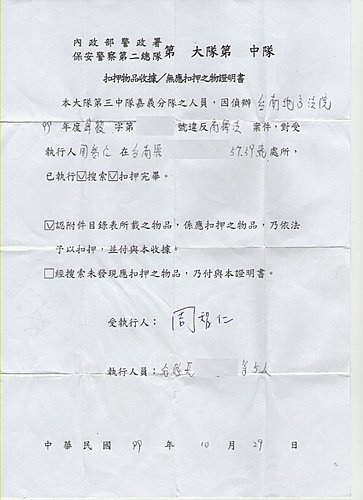 內政部警政署
保安警察第二總隊 第 大隊第 中隊
扣押物品收據╱無應扣押之物證明書
本大隊第三中隊嘉義分隊之人員，因偵辦台南地方法院
99年度 字第 號違反商標法案件，對受
執行人周 仁在台南縣 57.59號處所，
已執行☑搜索☑扣押完畢。
☑認附件目錄表所載之物品，係應扣押之物品，乃依法
予以扣押，並付與本收據。
□經搜索未發現應扣押之物品，乃付與本證明書。
受執行人：周 仁
執行人員：
中華民國 99 年 10 月 29 日